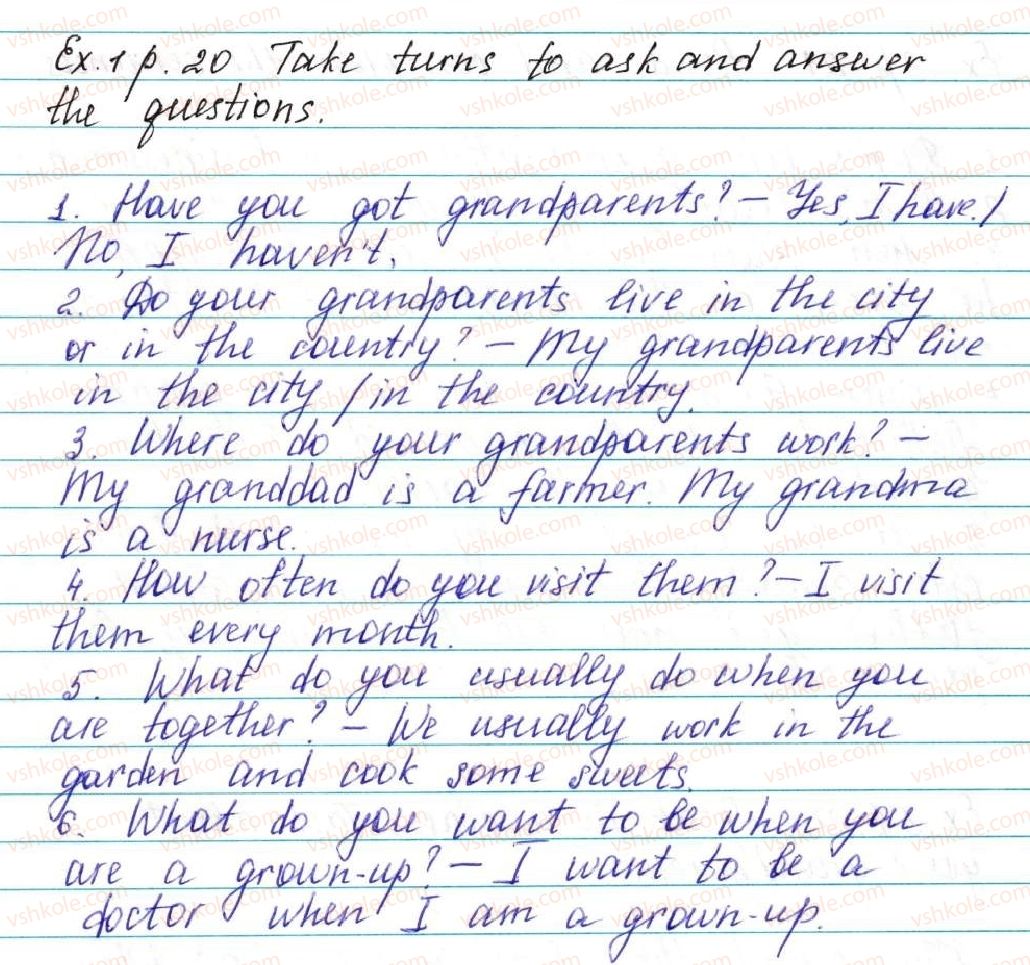 Ex. 1 p. 20 Take turns to ask and answer
the questions.
1. Have you got grandparents? – Yes, I have. /
No, I haven't.
2. Do your grandparents live in the city
or in the country? – My grandparents live
in the city / in the country.
3. Where do your grandparents work? –
My granddad is a farmer. My grandma
is a nurse.
4. How often do you visit them? – I visit
them every month.
5. What do you usually do when you
are together? – We usually work in the
garden and cook some sweets.
6. What do you want to be when you
are a grown-up? – I want to be a
doctor when I am a grown-up.